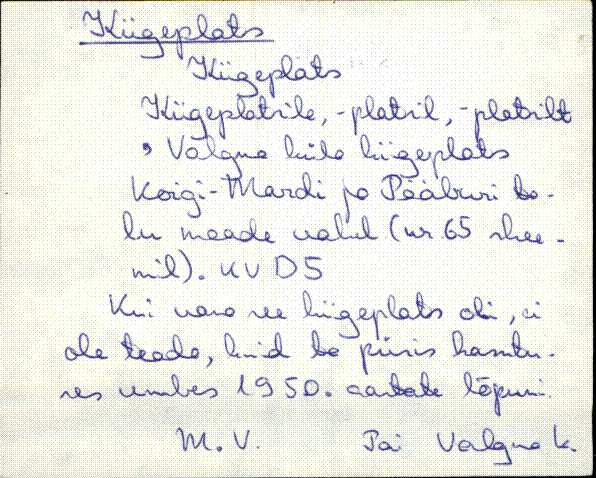 Kiigeplats
Kiigeplats
Kiigeplatsile, -platsil, -platsilt
, Valgma küla kiigeplats
Koigi-Mardi ja Pääburi ta-
lu maade vahel (nr 65 skee-
mil). KV D5
Kui vana see kiigeplats oli, ei
ole teada, kuid ta püsis kasutu-
ses umbes 1950. aastate lõpuni.
M. V. Pai Valgma k.